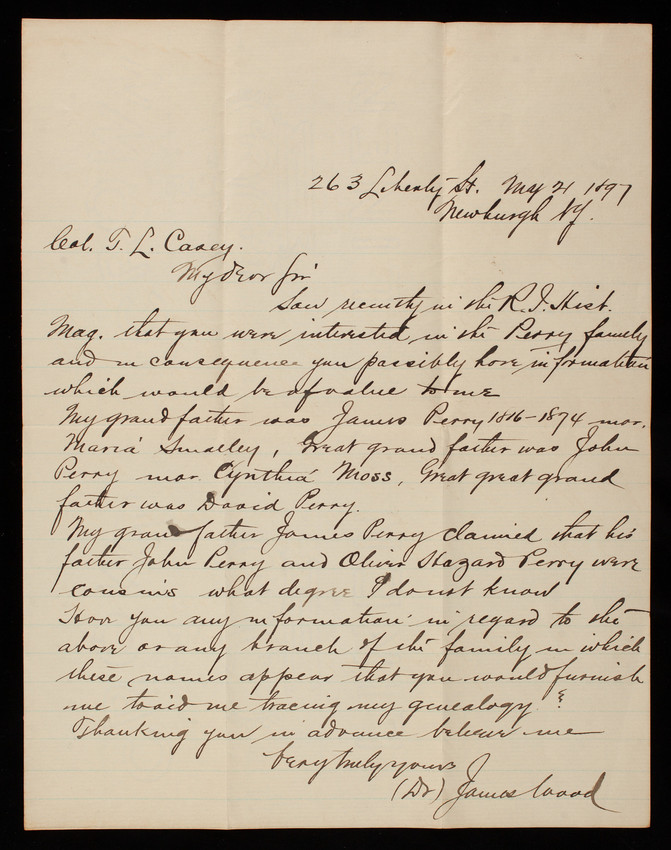 263 Liberty St. May 21 1897
Newburgh NY.
Col. T. L. Casey.
My dear Sir
Saw recently in the R.I. Hist.
Mag. that you were interested in the Perry family
and in consequence you possibly have information
which would be of value to me
My grandfather was James Perry 1816-1874 mar.
Maria Smalley, Great grand father was John
Perry mar. Cynthia Moss, Great great grand
father was David Perry.
My grandfather James Perry claimed that his
father John Perry and Oliver Hazard Perry were
cousins what degree I do not know
Have you any information in regard to the
above or any branch of the family in which
these names appear that you would furnish
me to aid me tracing my genealogy?
Thanking you in advance believe me
Very truly yours
(Dr) James Wood